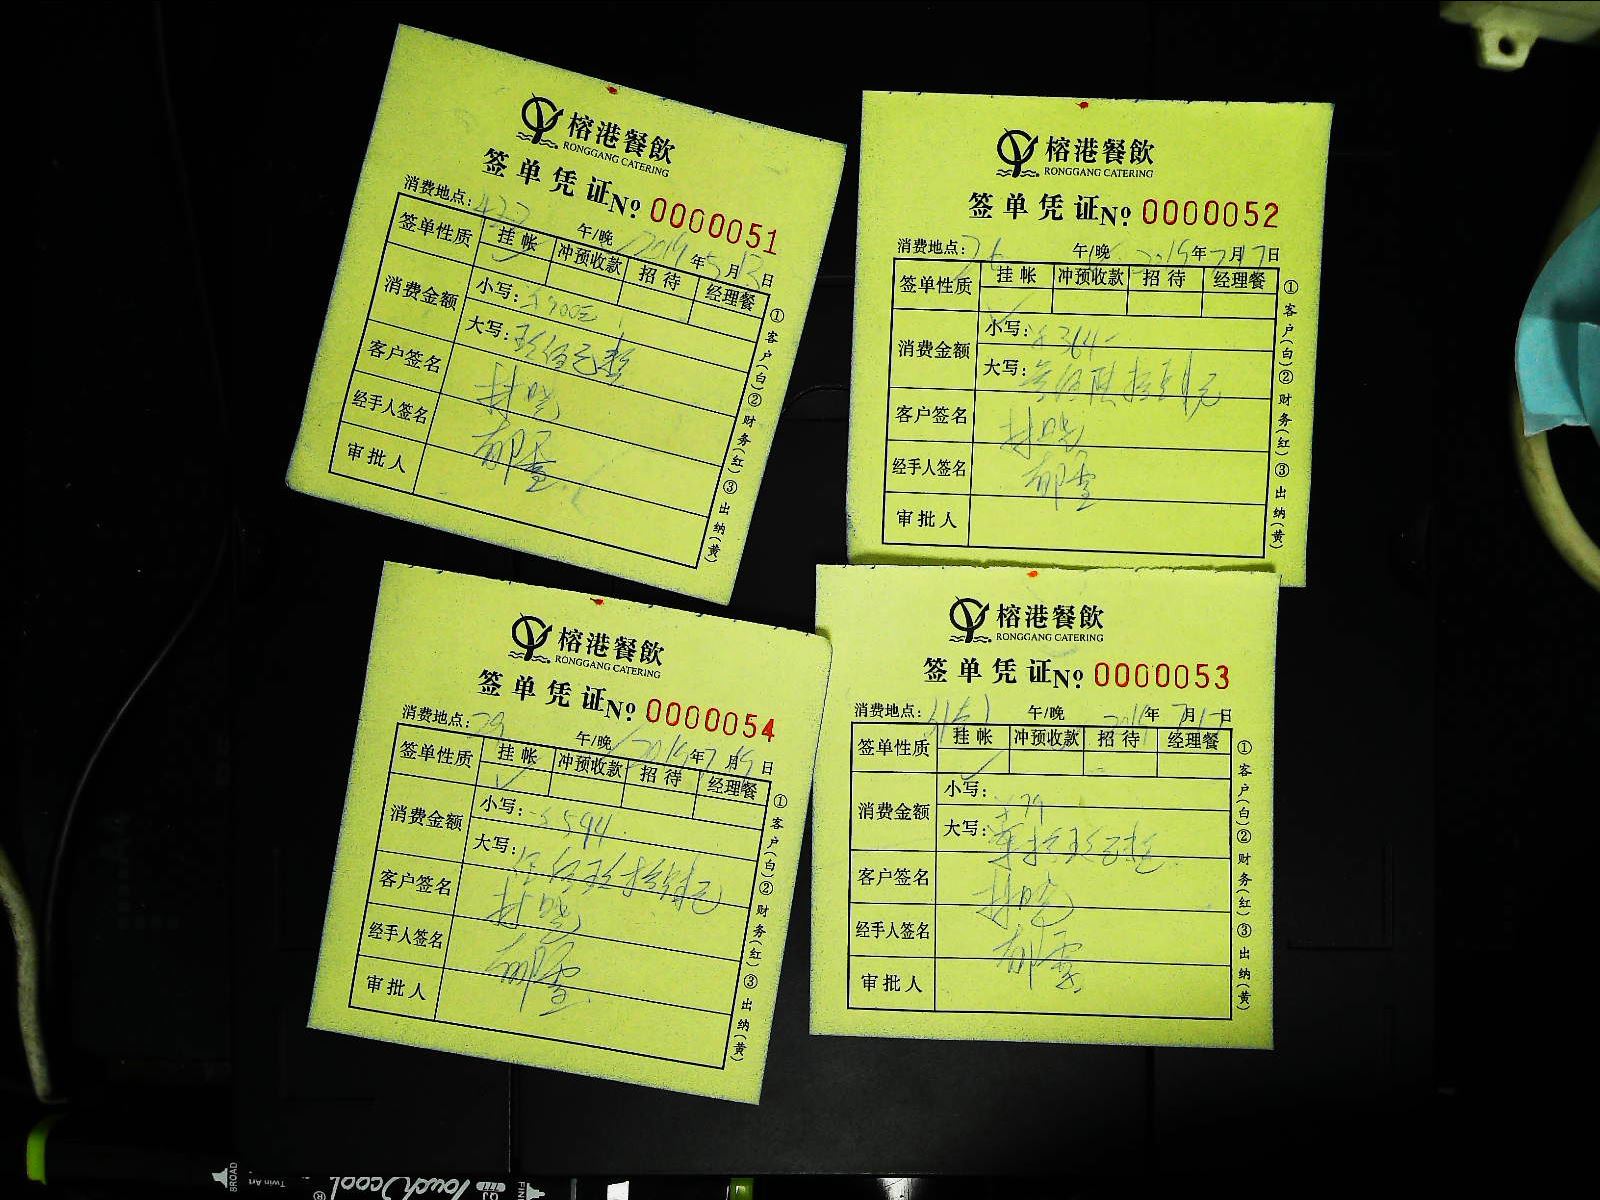 榕港餐飲
RONGGANG CATERING
签单凭证 Nº 0000051
消费地点: 午/晚 2019年5月13日
签单性质 挂帐 冲预收款 招待 经理餐
消费金额
小写:
大写:
客户签名
经手人签名 郁雪
审批人
①客户(白)②财务(红)③出纳(黄)
榕港餐飲
RONGGANG CATERING
签单凭证 Nº 0000052
消费地点: 午/晚 年7月7日
签单性质 挂帐 冲预收款 招待 经理餐
消费金额
小写: ¥364-
大写:
客户签名
经手人签名 郁雪
审批人
①客户(白)②财务(红)③出纳(黄)
榕港餐飲
RONGGANG CATERING
签单凭证 Nº 0000054
消费地点: 29 午/晚 年7月 日
签单性质 挂帐 冲预收款 招待 经理餐
消费金额
小写: 594
大写:
客户签名
经手人签名 郁雪
审批人
①客户(白)②财务(红)③出纳(黄)
榕港餐飲
RONGGANG CATERING
签单凭证 Nº 0000053
消费地点: 午/晚 年7月 日
签单性质 挂帐 冲预收款 招待 经理餐
消费金额
小写: ¥79
大写:
客户签名
经手人签名 郁雪
审批人
①客户(白)②财务(红)③出纳(黄)
BROAD
Twin Art
Touch cool